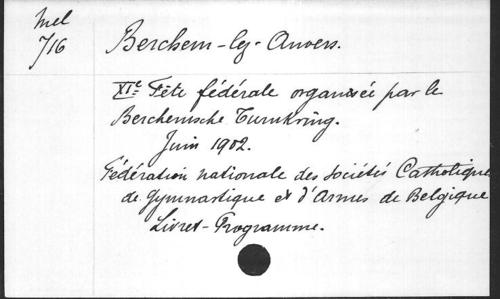 Mel
716
Berchem-lez-Anvers.
XIe Fête fédérale organisée par le
Berchemsche Turnkring.
Juin 1902.
Fédération nationale des Sociétés Catholiques
de Gymnastique et d'Armes de Belgique
Livret-Programme.